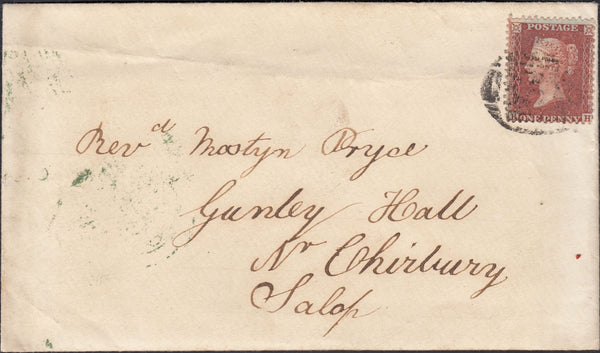 POSTAGE
ONE PENNY
Revd Mostyn Pryce
Gunley Hall
Nr Chirbury
Salop